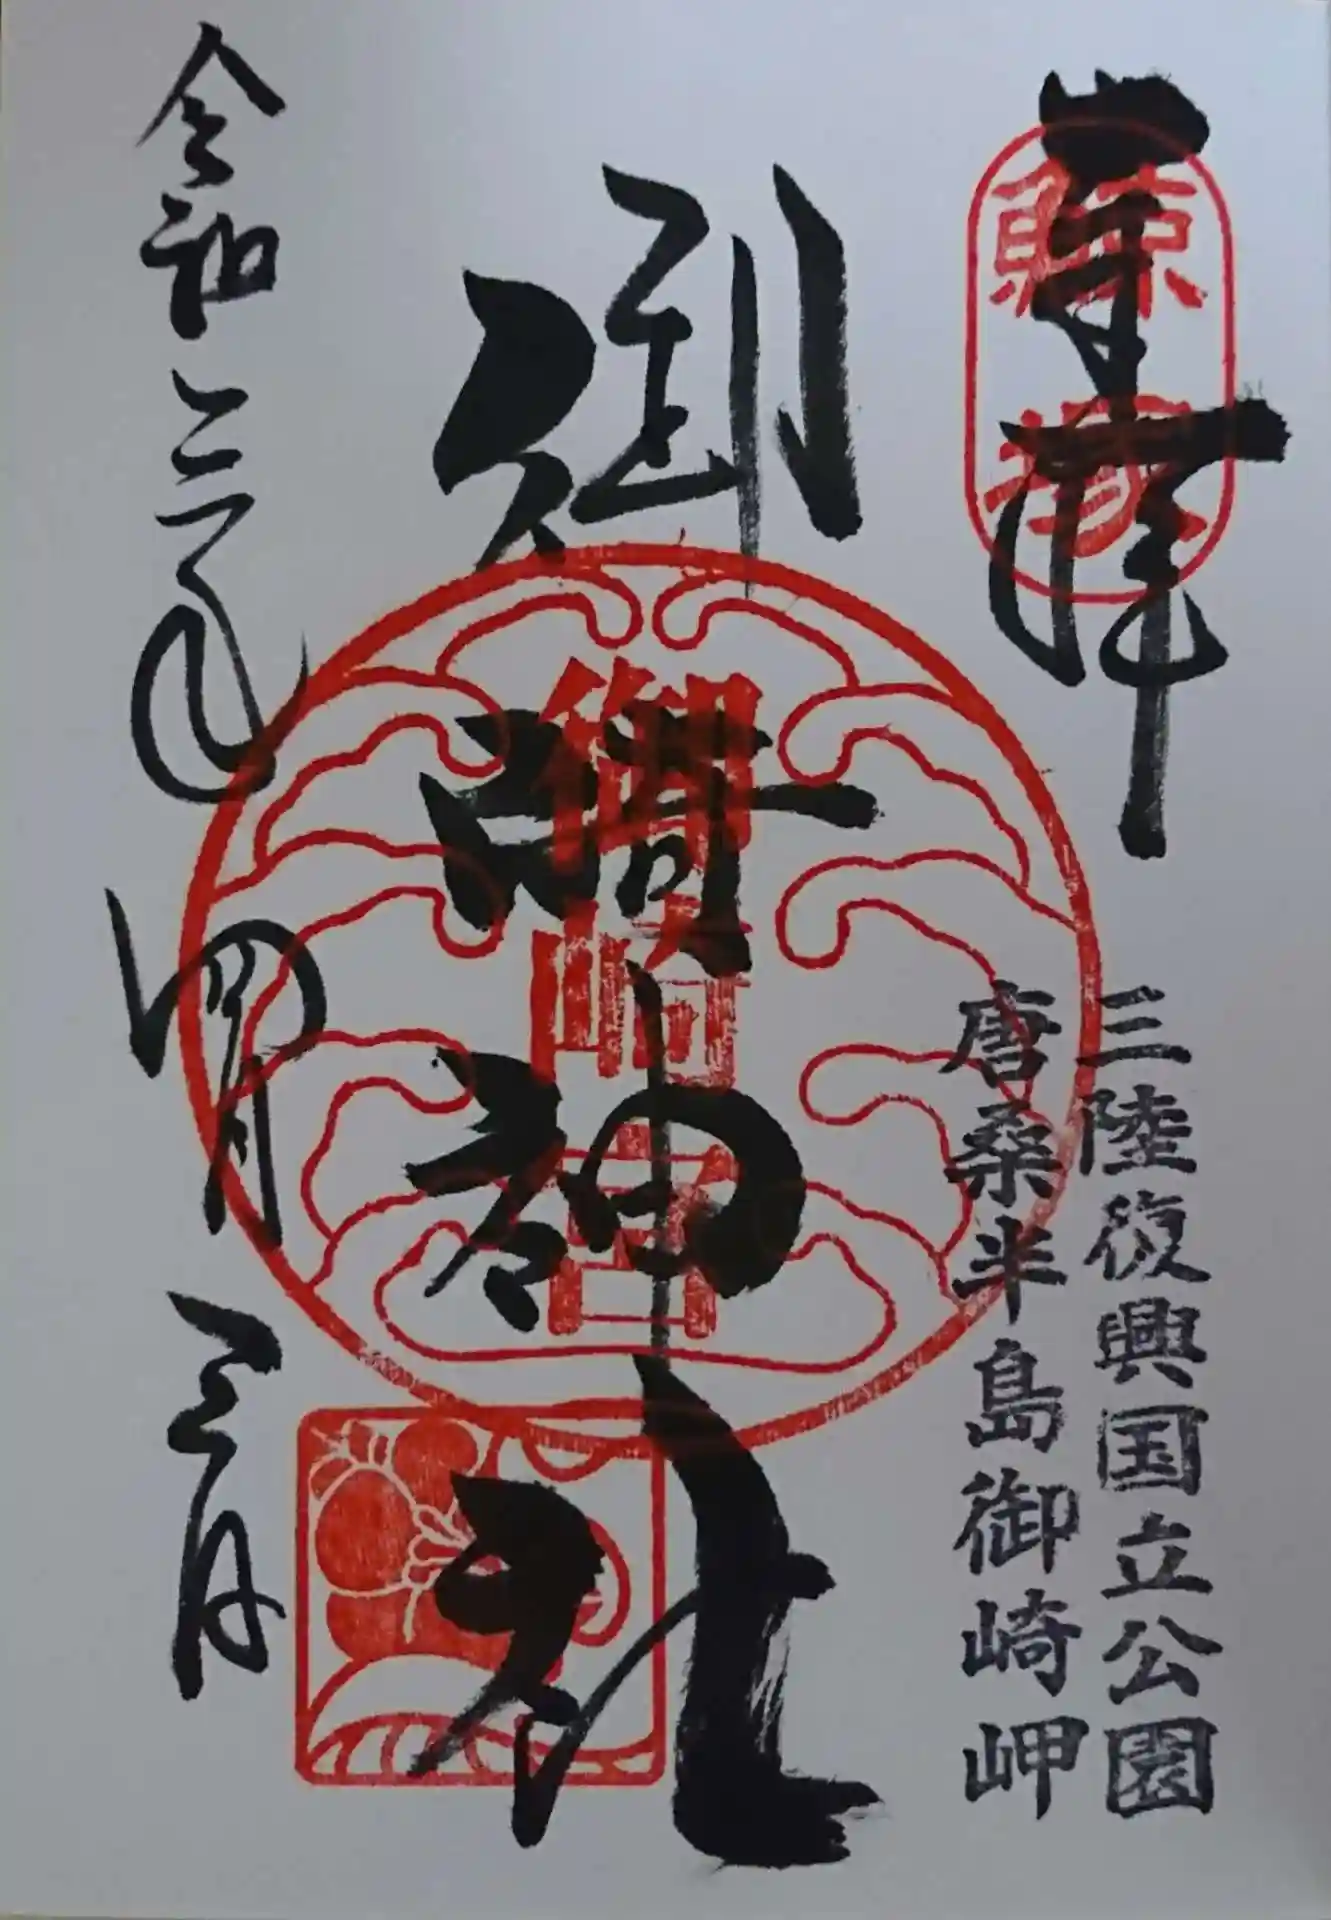 奉拝
鯨塚
三陸復興国立公園
唐桑半島御崎岬
御崎神社
令和二年四月三日